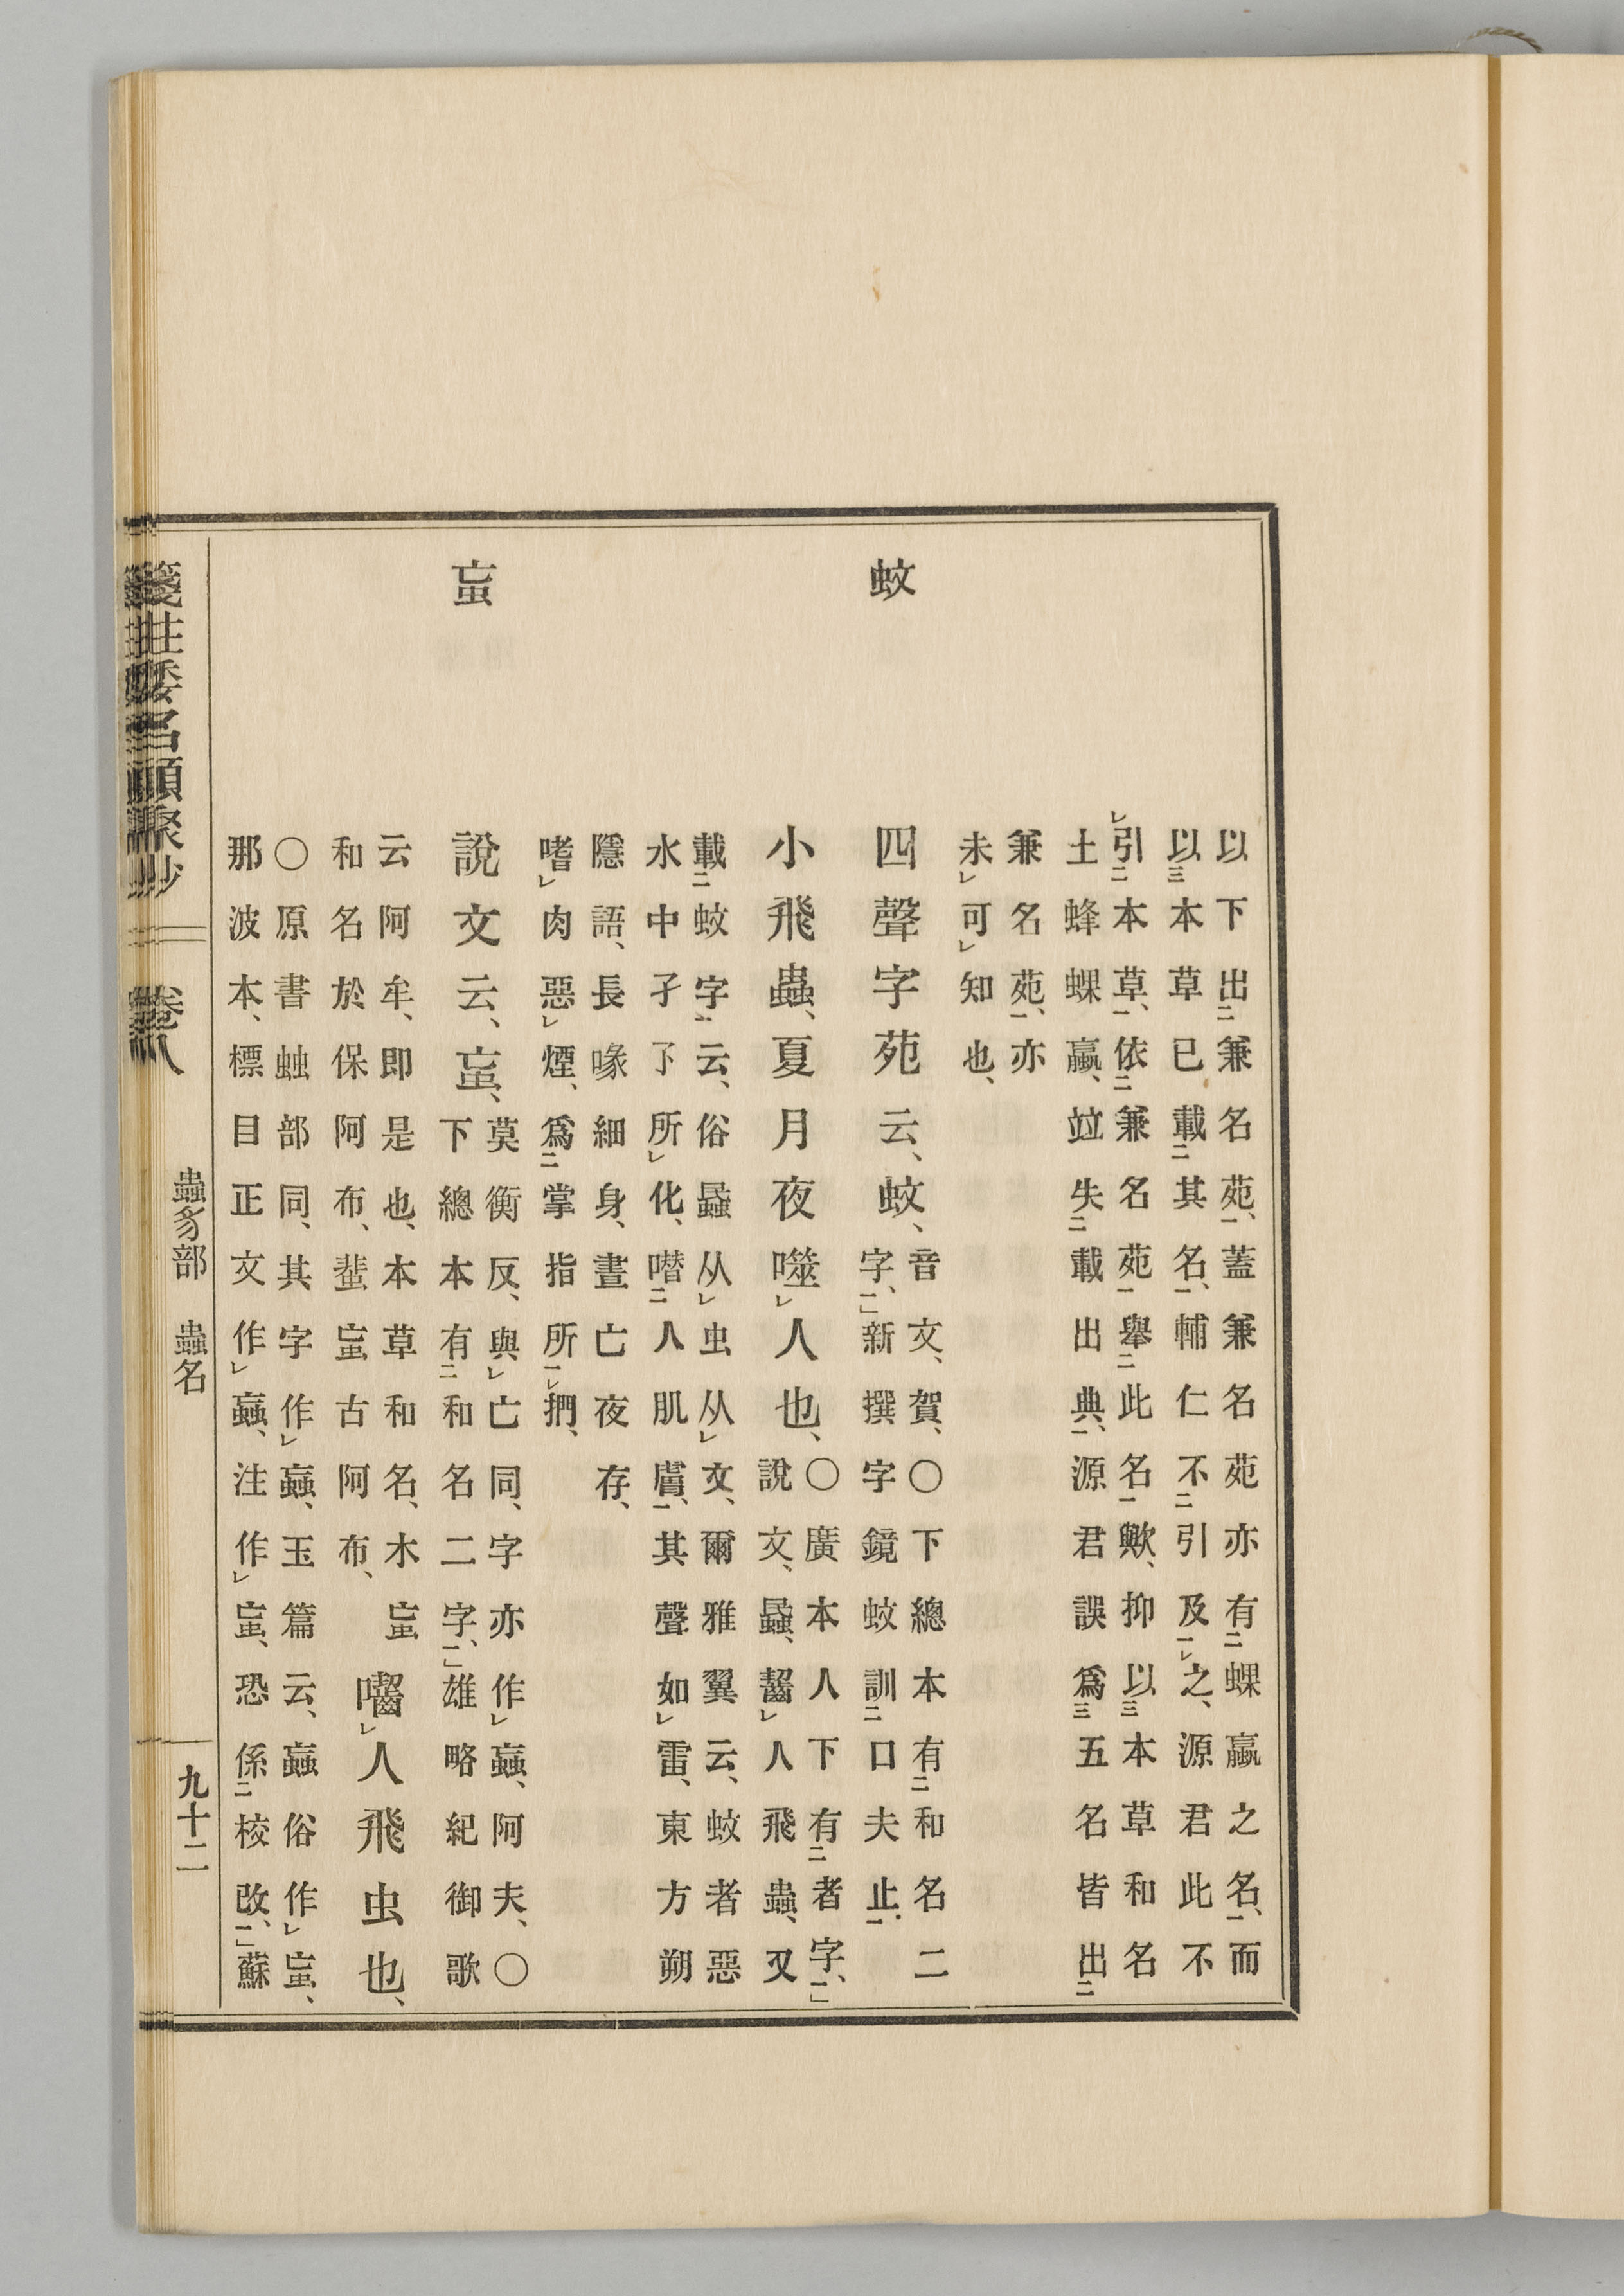 以下出兼名苑、蓋兼名苑亦有蜾蠃之名、而
以本草已載其名、輔仁不引及之、源君此不
引本草、依兼名苑擧此名歟、抑以本草和名
土蜂蜾蠃、竝失載出典、源君誤爲五名皆出
兼名苑、亦
未可知也、
蚊
四聲字苑云、蚊、
音文、賀、〇下總本有和名二
字、新撰字鏡蚊訓口夫止、
小飛蟲、夏月夜噬人也、
〇廣本人下有者字、
說文、蟁、齧人飛蟲、又
載蚊字云、俗蟁从虫从文、爾雅翼云、蚊者惡
水中孑孓所化、噆人肌膚、其聲如雷、東方朔
隱語、長喙細身、晝亡夜存、
嗜肉惡煙、爲掌指所捫、
䖟
說文云、䖟、
莫衡反、與亡同、字亦作蝱、阿夫、〇
下總本有和名二字、雄略紀御歌
云阿牟、即是也、本草和名、木䖟
和名於保阿布、蜚䖟古阿布、
囓人飛虫也、
〇原書䖵部同、其字作蝱、玉篇云、蝱俗作䖟、
那波本、標目正文作蝱、注作䖟、恐係校改、蘇
箋注倭名類聚抄
卷八
蟲豸部
蟲名
九十二